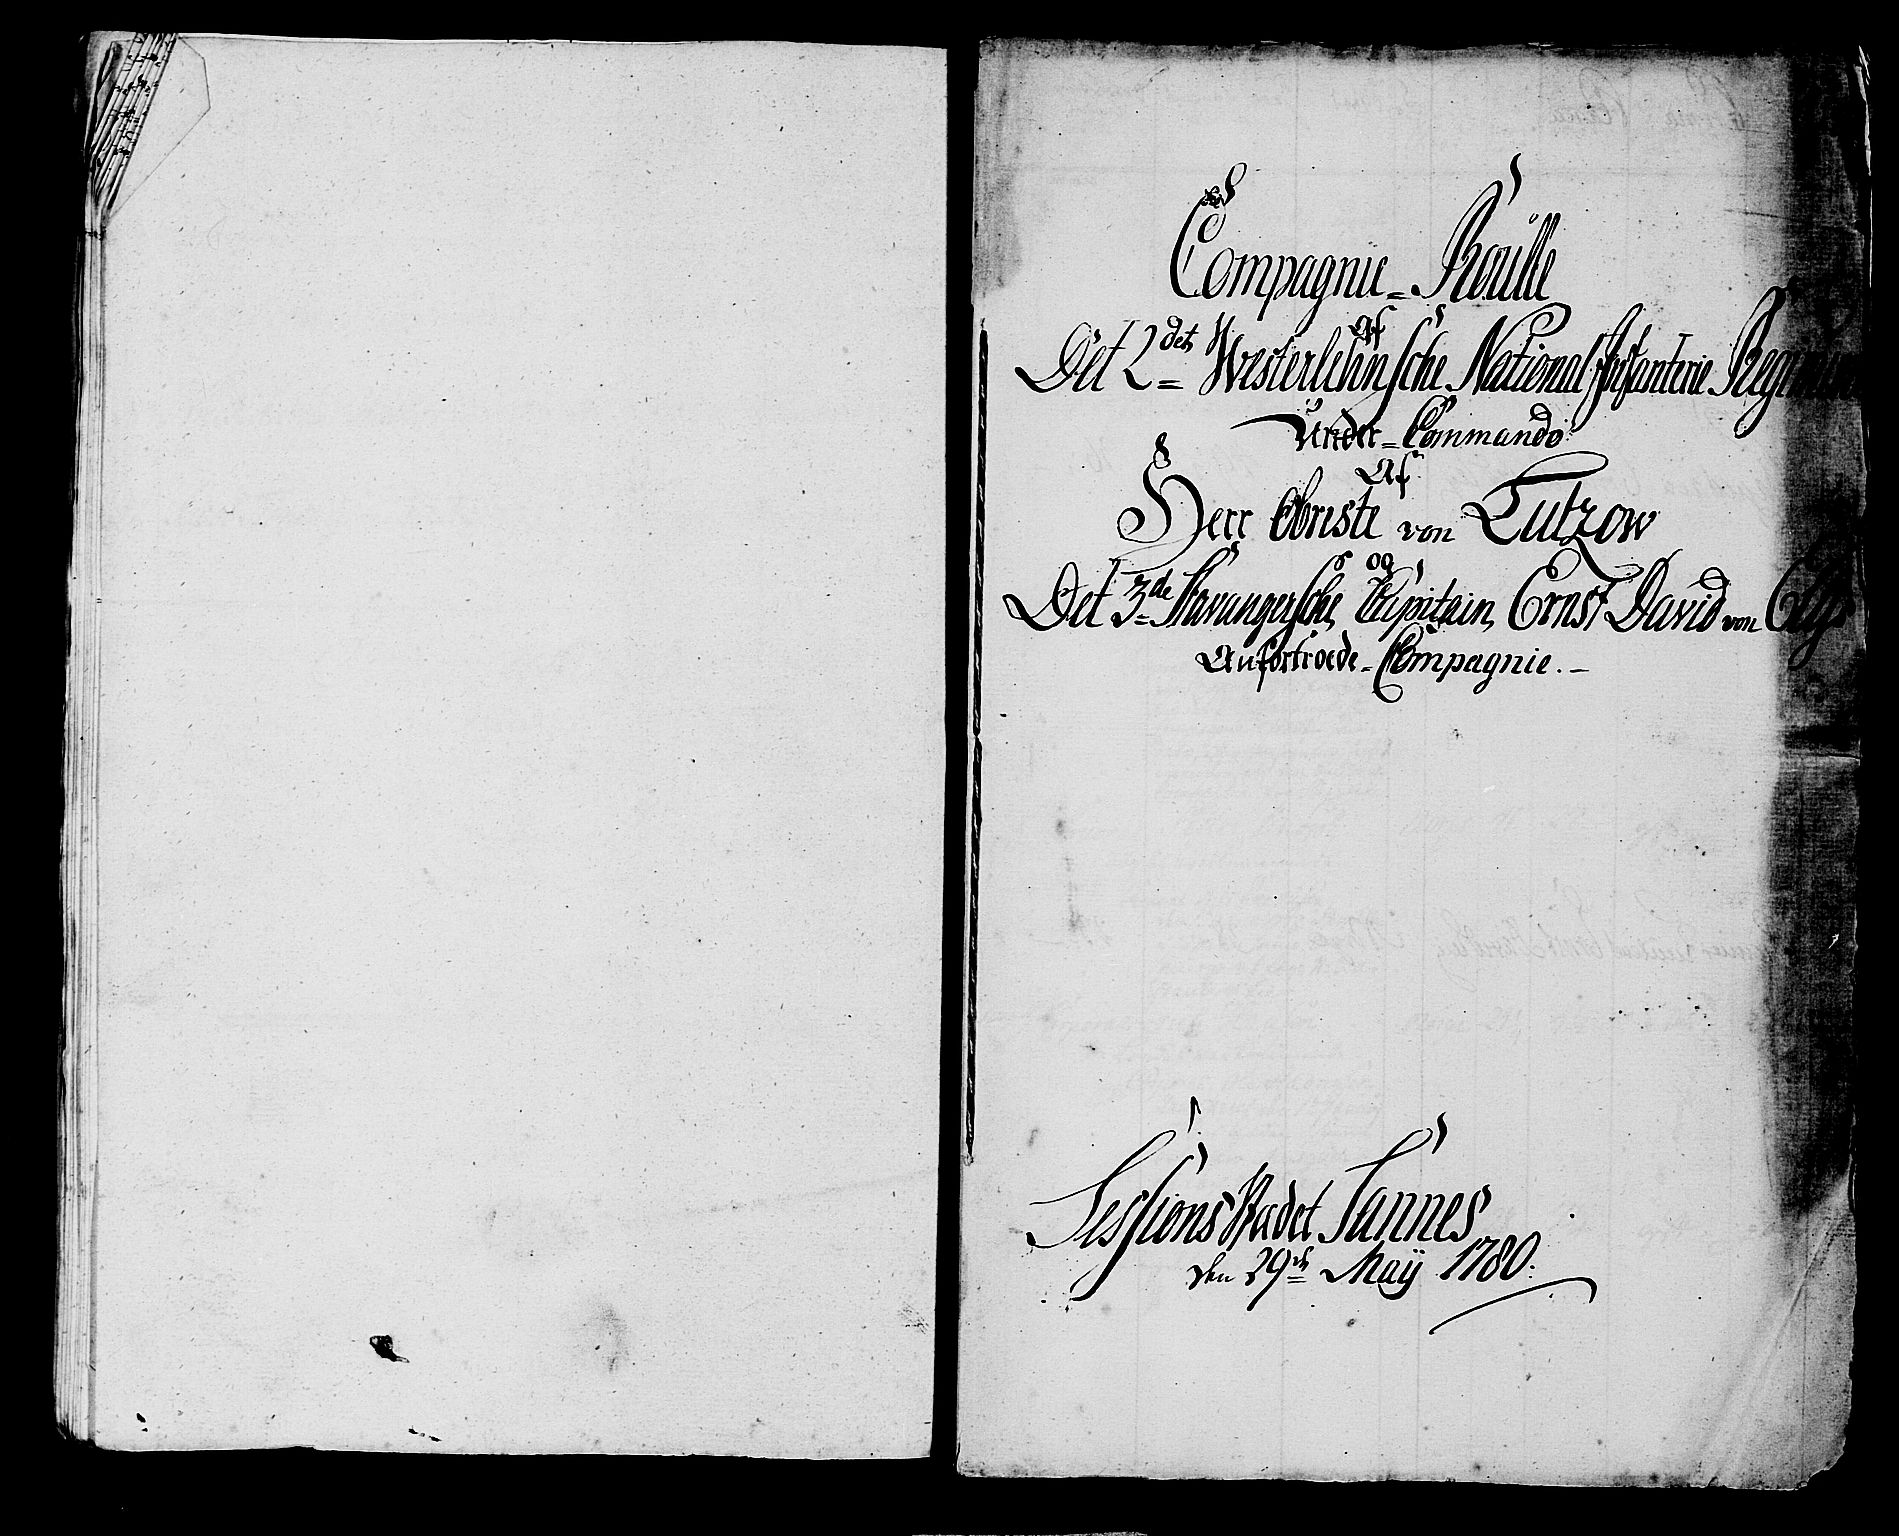 Compagnie = Roulle
Af
Det 2det Westerlehnsche National Infanterie
Under = Commando
Af
Herr Obriste von Lutzow
og
Det 3de Stavangersche, Capitain, Ernst David von
Anfortroede = Compagnie. -
Sessions Stædet Sannes
den 29de Maÿ 1780.